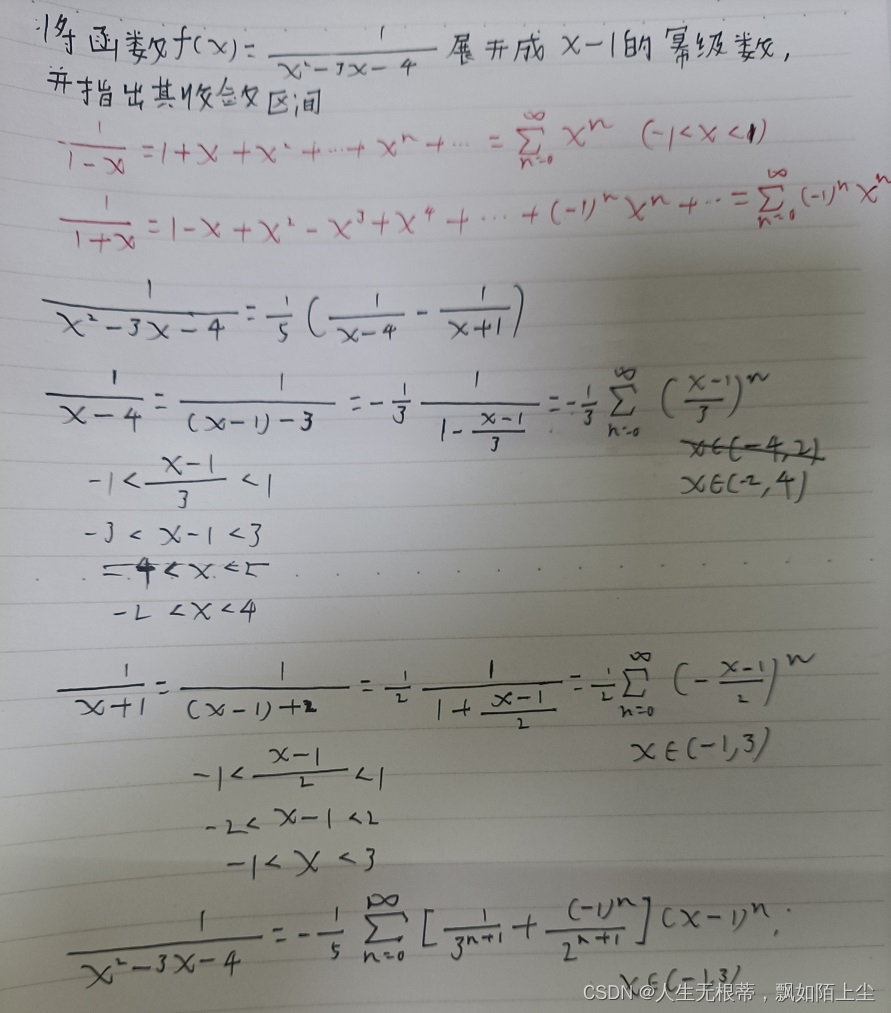 将函数f(x)= 1/(x²-3x-4) 展开成 x-1的幂级数,
并指出其收敛区间
1/(1-x) = 1+x+x²+…+xⁿ+… = ∑_{n=0}^{∞} xⁿ (-1<x<1)
1/(1+x) = 1-x+x²-x³+x⁴+…+(-1)ⁿxⁿ+… = ∑_{n=0}^{∞} (-1)ⁿxⁿ
1/(x²-3x-4) = 1/5 (1/(x-4) - 1/(x+1))
1/(x-4) = 1/((x-1)-3) = -1/3 1/(1-(x-1)/3) = -1/3 ∑_{n=0}^{∞} ((x-1)/3)ⁿ
x∈(-4,2)
-1<(x-1)/3<1 x∈(-2,4)
-3<x-1<3
-4<x<5
-2<x<4
1/(x+1) = 1/((x-1)+2) = 1/2 1/(1+(x-1)/2) = 1/2 ∑_{n=0}^{∞} (-(x-1)/2)ⁿ
x∈(-1,3)
-1<(x-1)/2<1
-2<x-1<2
-1<x<3
1/(x²-3x-4) = -1/5 ∑_{n=0}^{∞} [1/3ⁿ⁺¹ + (-1)ⁿ/2ⁿ⁺¹](x-1)ⁿ;
x∈(-1,3)
CSDN @人生无根蒂，飘如陌上尘